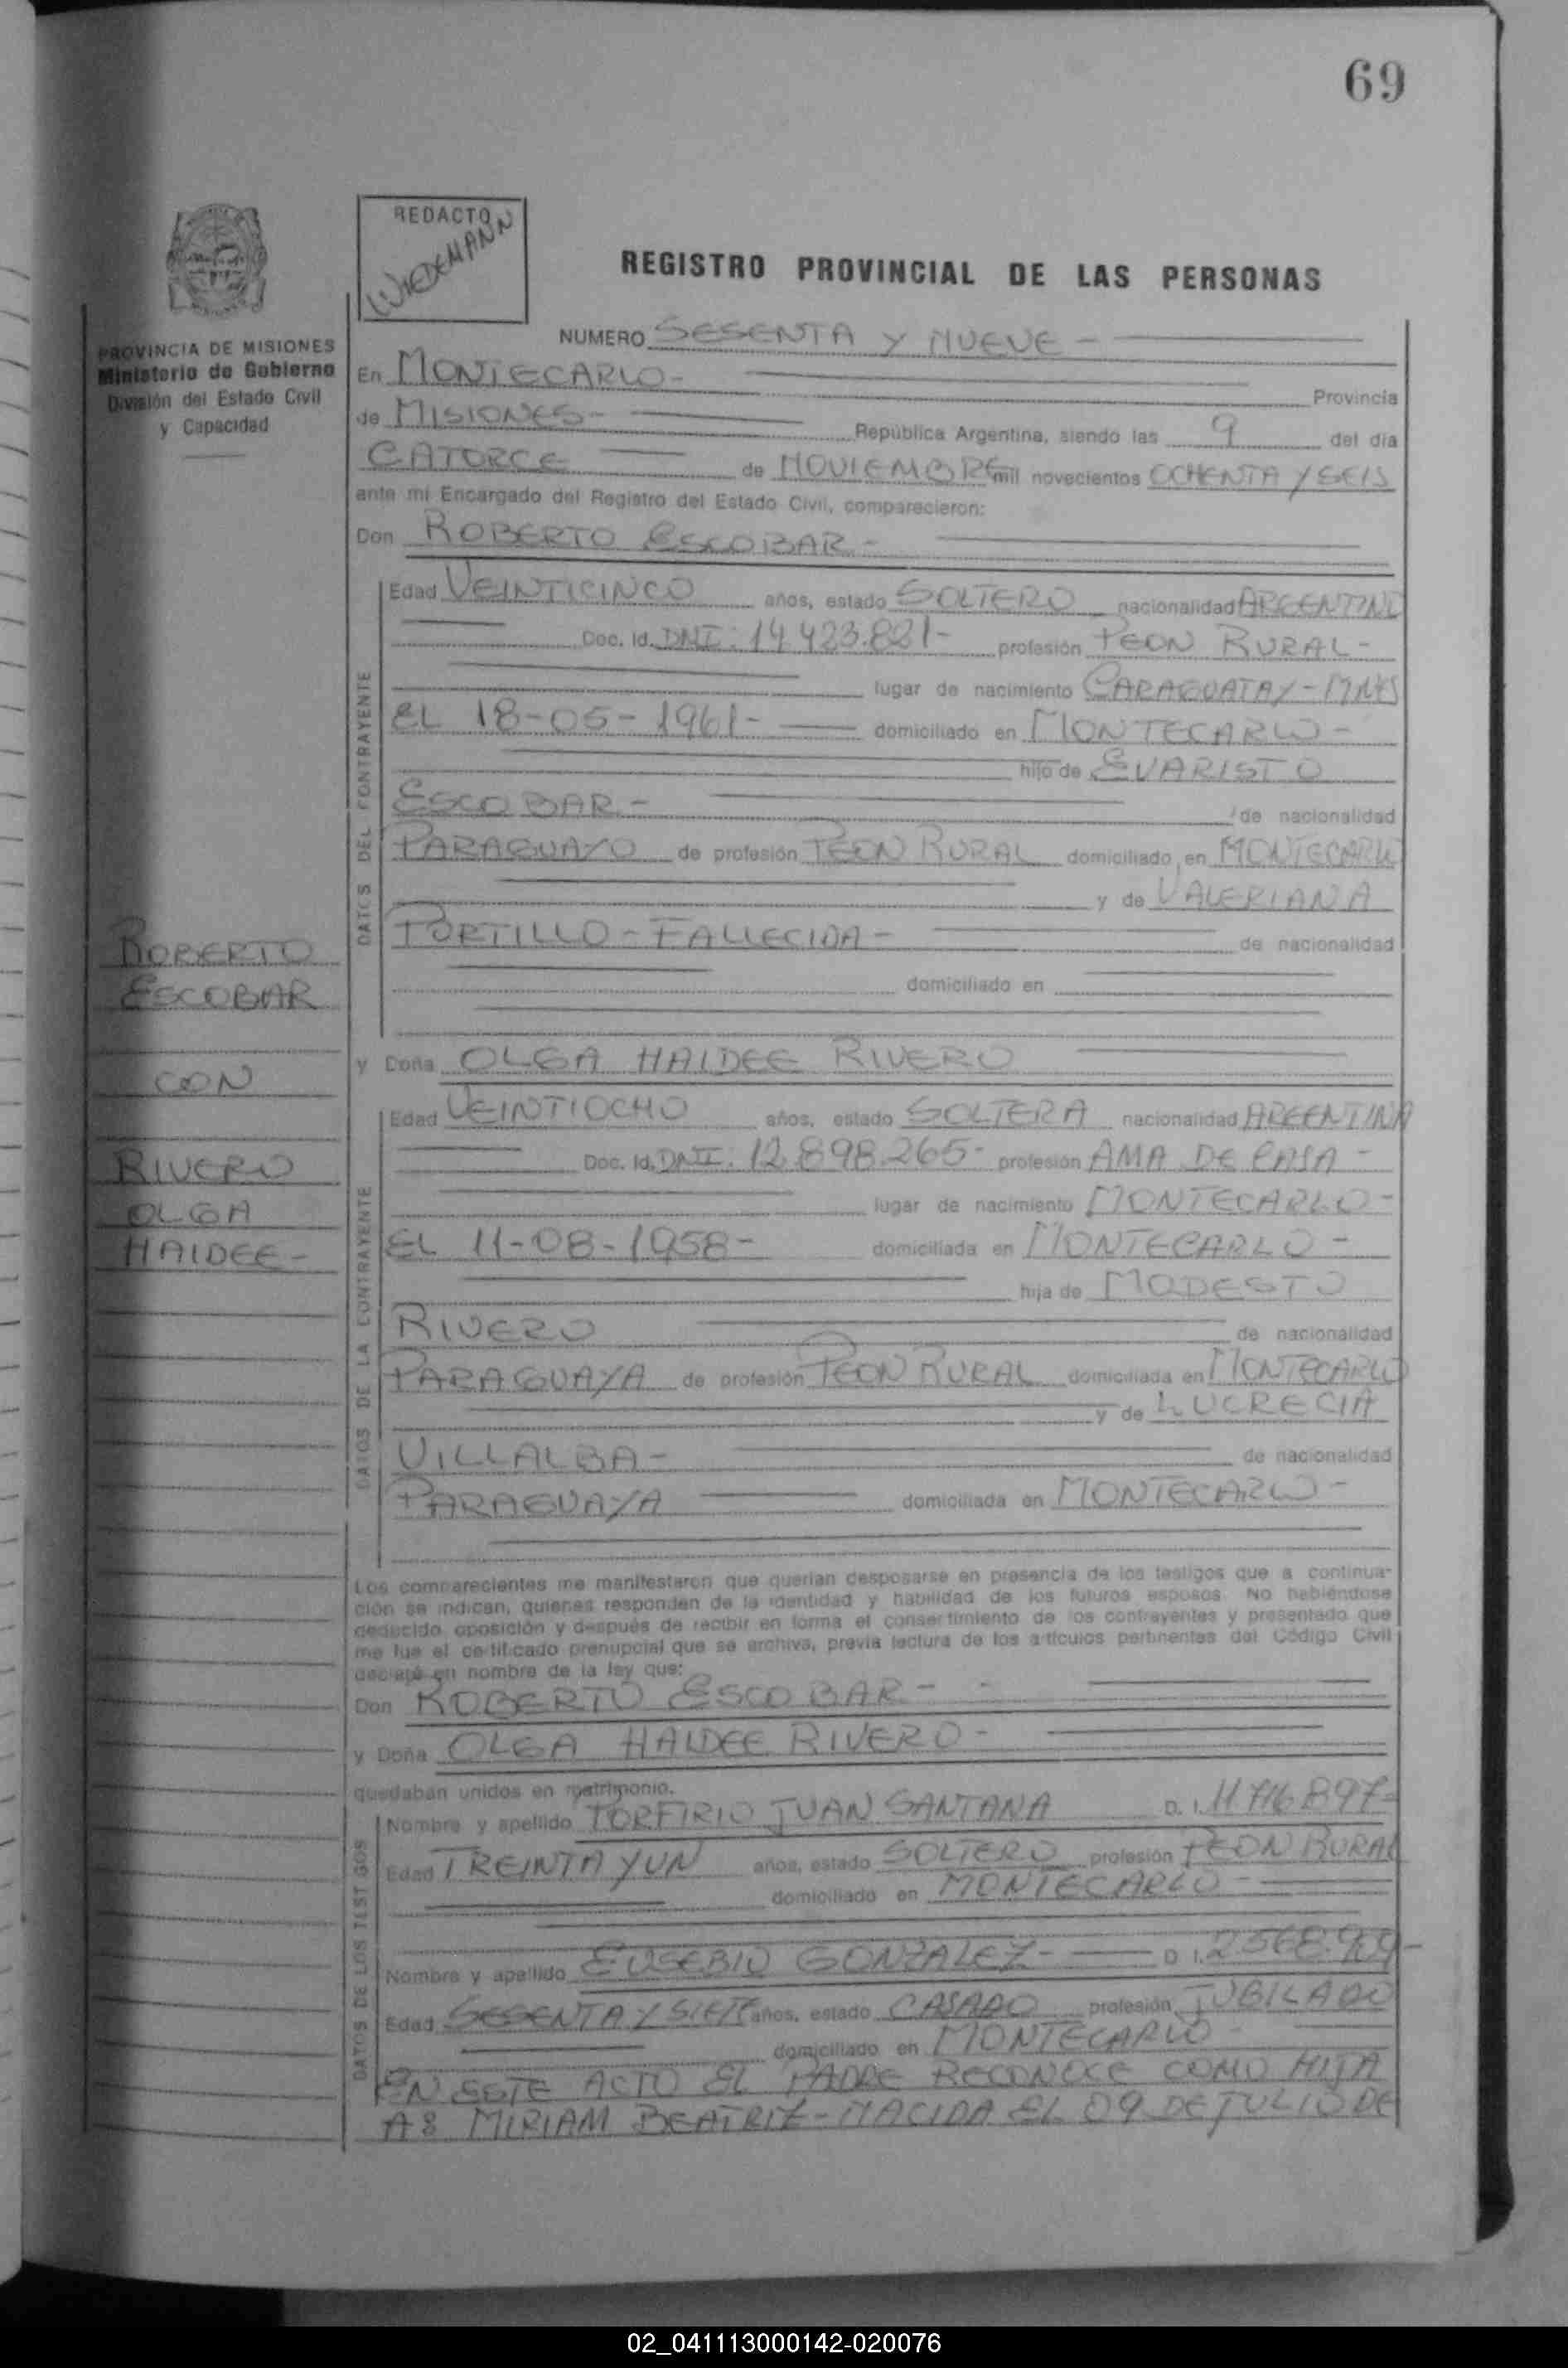 69
REDACTO
WIEDEMANN
REGISTRO PROVINCIAL DE LAS PERSONAS
PROVINCIA DE MISIONES
Ministerio de Gobierno
División del Estado Civil
y Capacidad
NUMERO SESENTA Y NUEVE -
En MONTECARLO - Provincia
de MISIONES - República Argentina, siendo las 9 del día
CATORCE de NOVIEMBRE mil novecientos OCHENTA Y SEIS
ante mí Encargado del Registro del Estado Civil, comparecieron:
Don ROBERTO ESCOBAR -
DATOS DEL CONTRAYENTE
Edad VEINTICINCO años, estado SOLTERO nacionalidad ARGENTINO
Doc. Id. DNI: 14.423.821- profesión PEON RURAL -
lugar de nacimiento CARAGUATAY - MNES
EL 18-05-1961- domiciliado en MONTECARLO -
hijo de EVARISTO
ESCOBAR - de nacionalidad
PARAGUAYO de profesión PEON RURAL domiciliado en MONTECARLO
y de VALERIANA
PORTILLO - FALLECIDA - de nacionalidad
domiciliado en
ROBERTO
ESCOBAR
CON
RIVERO
OLGA
HAIDEE -
y Doña OLGA HAIDEE RIVERO
DATOS DE LA CONTRAYENTE
Edad VEINTIOCHO años, estado SOLTERA nacionalidad ARGENTINA
Doc. Id. DNI: 12.898.265- profesión AMA DE CASA -
lugar de nacimiento MONTECARLO -
EL 11-08-1958- domiciliada en MONTECARLO -
hija de MODESTO
RIVERO de nacionalidad
PARAGUAYA de profesión PEON RURAL domiciliada en MONTECARLO
y de LUCRECIA
VILLALBA - de nacionalidad
PARAGUAYA domiciliada en MONTECARLO -
Los comparecientes me manifestaron que querían desposarse en presencia de los testigos que a continua-
ción se indican, quienes responden de la identidad y habilidad de los futuros esposos. No habiéndose
deducido oposición y después de recibir en forma el consentimiento de los contrayentes y presentado que
me fue el certificado prenupcial que se archiva, previa lectura de los artículos pertinentes del Código Civil
declaré en nombre de la ley que:
Don ROBERTO ESCOBAR - -
y Doña OLGA HAIDEE RIVERO -
quedaban unidos en matrimonio.
DATOS DE LOS TESTIGOS
Nombre y apellido PORFIRIO JUAN SANTANA D. I. 11.716.897-
Edad TREINTA Y UN años, estado SOLTERO profesión PEON RURAL
domiciliado en MONTECARLO -
Nombre y apellido EUSEBIO GONZALEZ - D. I.
Edad SESENTA Y SIETE años, estado CASADO profesión JUBILADO
domiciliado en MONTECARLO -
EN ESTE ACTO EL PADRE RECONOCE COMO HIJA
A: MIRIAM BEATRIZ - NACIDA EL 09 DE JULIO DE
02_041113000142-020076